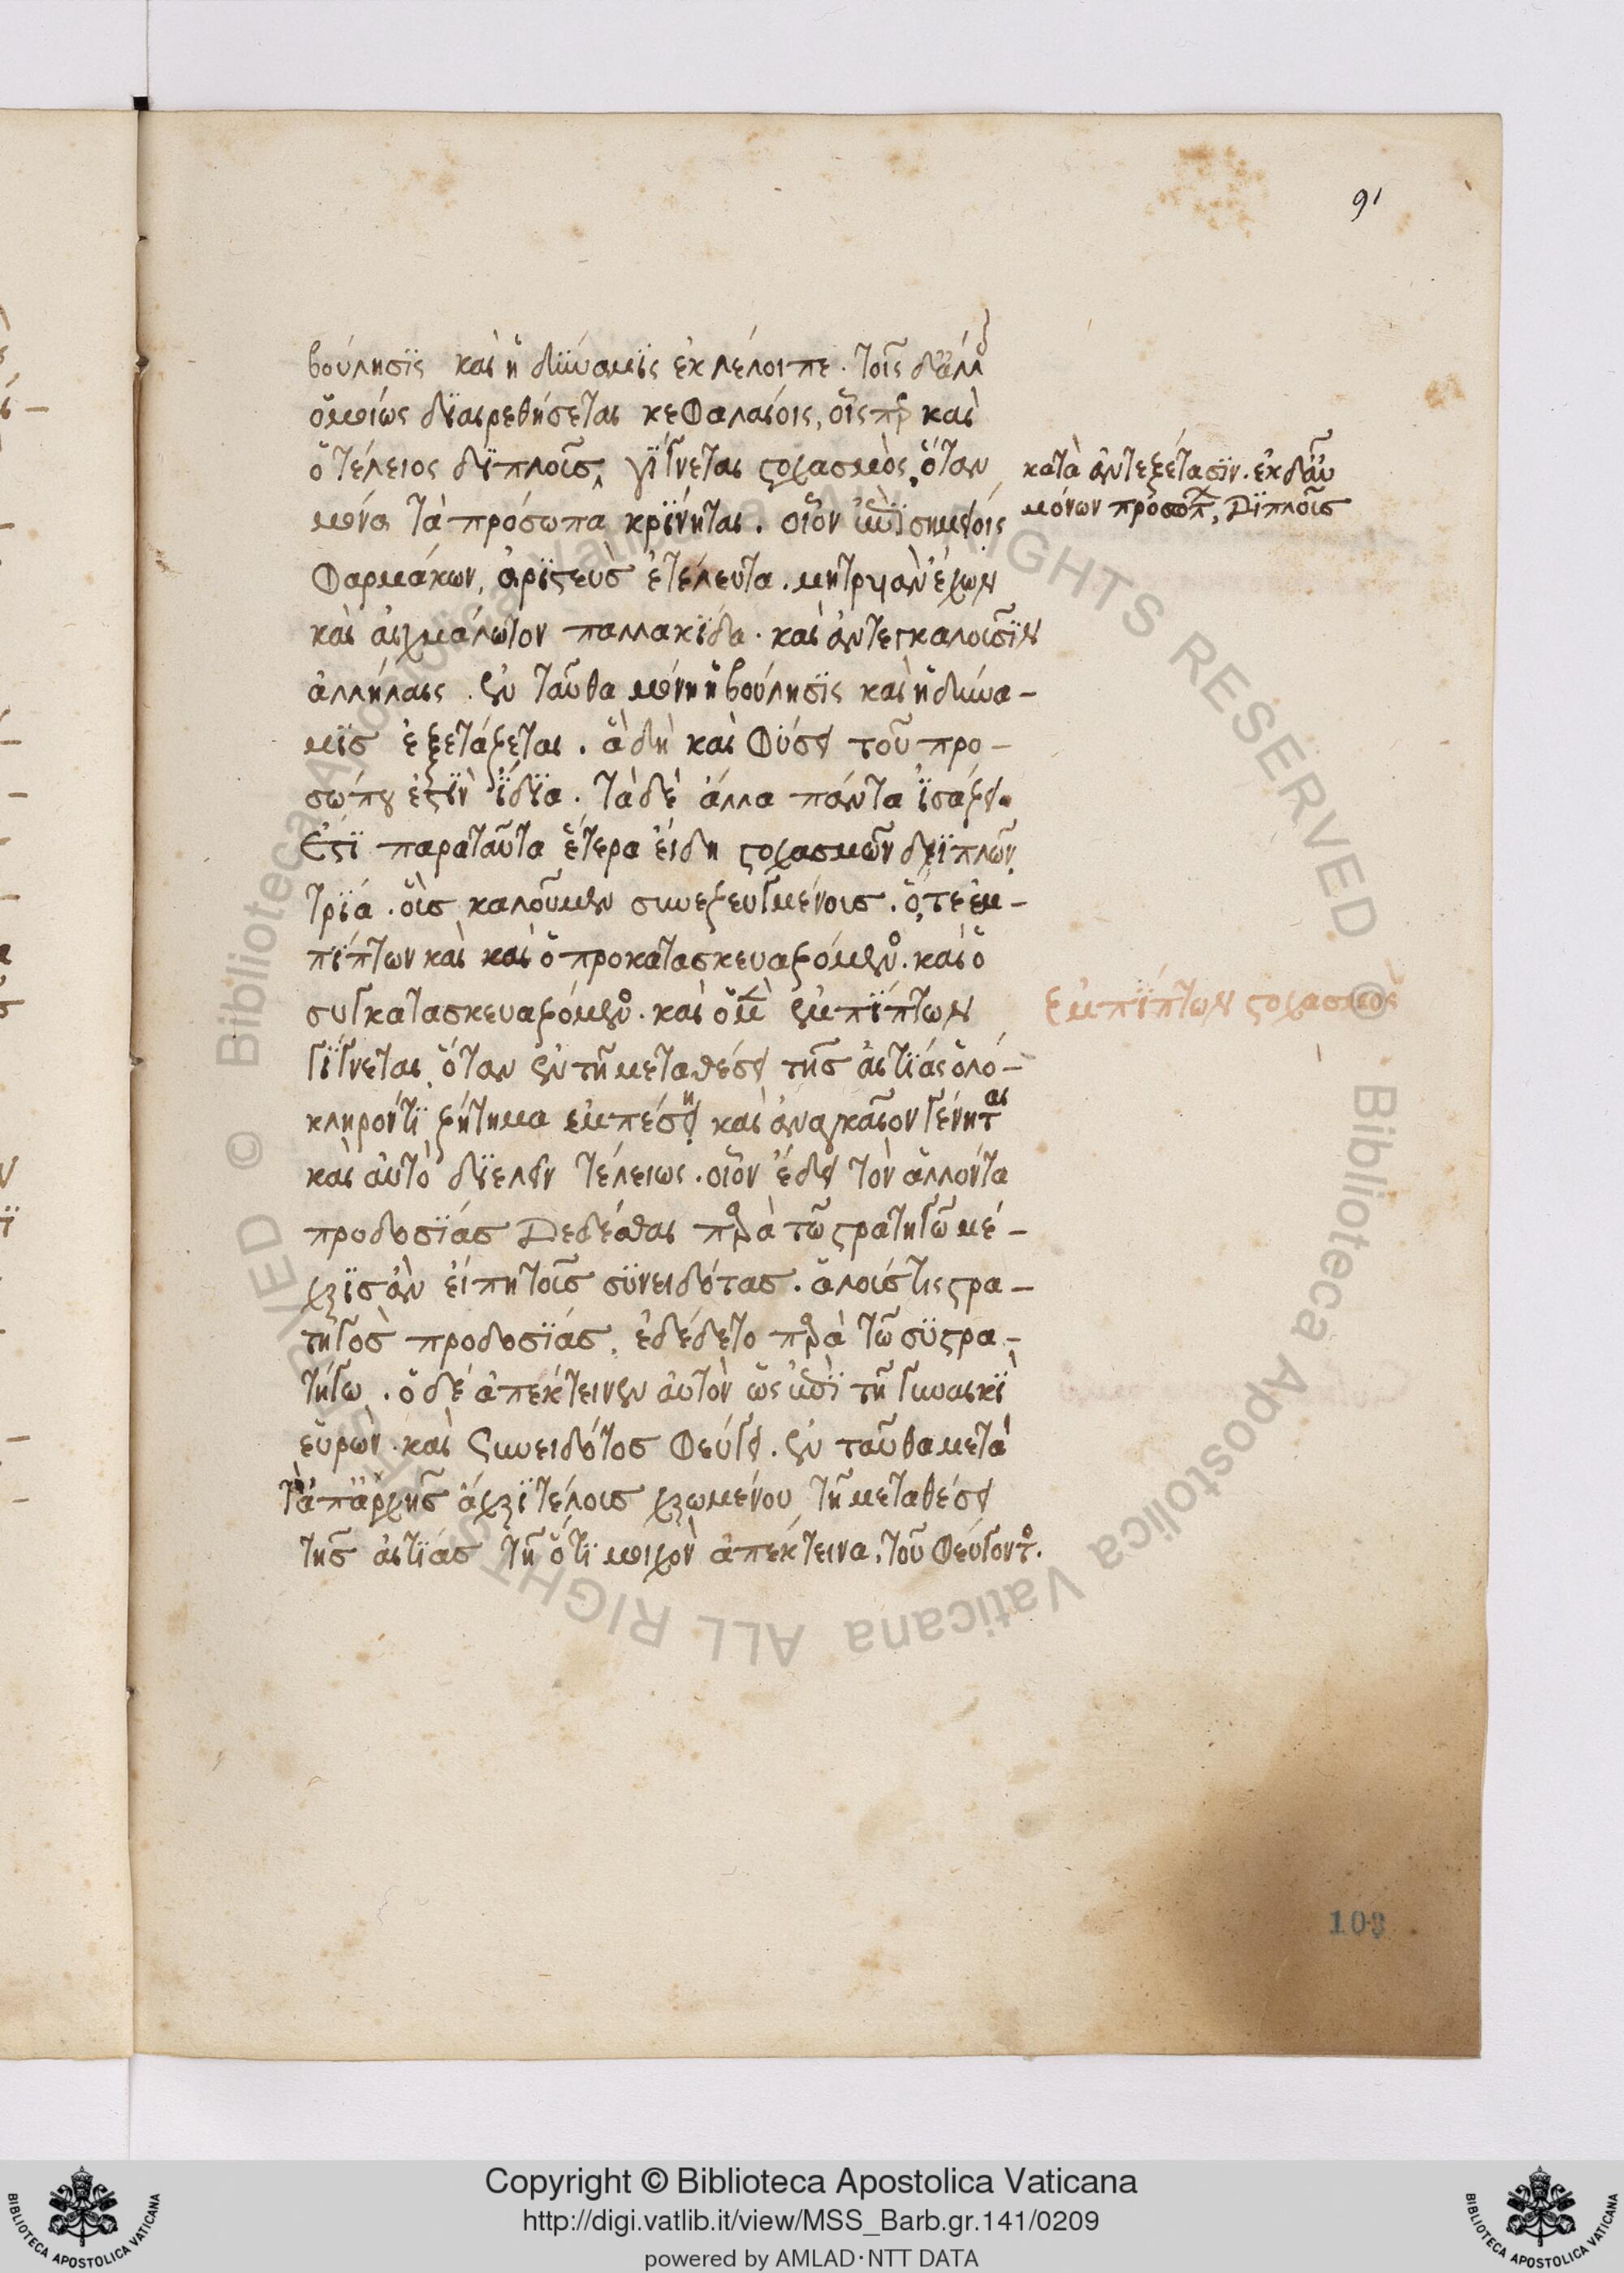 91
βούλησϊς καὶ ἡ δύναμϊς ἐκλέλοιπε. τοῖς δ' ἄλλ
ὁμοίως δϊαιρεθήσεται κεφαλαίοις, οἷσπερ καὶ
ὁ τέλειος δϊπλοῦσ, γϊγνεται στοχασμὸς, ὅταν
μόνα τὰ πρόσωπα κρϊνηται. οἷον ἐπὶ σημείοις
φαρμάκων, ἀρϊστεὺσ ἐτελεύτα. μητρυιὰν ἔχων
καὶ αἰχμάλωτον παλλακϊδα. καὶ ἀντεγκαλοῦσϊν
ἀλλήλαις. ἐν ταῦθα μόνη ἡ βούλησϊς καὶ ἡ δύνα-
μϊσ ἐξετάζεται. ἃ δὴ καὶ φύσει τοῦ προ-
σώπου ἐστϊν ἴδϊα. τὰ δὲ ἄλλα πάντα ἰσάζει.
Ἐστϊ παρα ταῦτα ἕτερα εἴδη στοχασμῶν δϊπλῶν
τρϊά. οὓσ καλοῦμεν συνεζευγμένουσ. ὅ, τε ἐμ-
πϊπτων καὶ καὶ ὁ προκατασκευαζόμενος. καὶ ὁ
συγκατασκευαζόμενος. καὶ ὁ μὲν ἐμπϊπτων
γϊγνεται, ὅταν ἐν τῆ μεταθέσει τῆσ αἰτϊάς ὁλό-
κληρόν τϊ ζήτημα ἐμπέσῃ καὶ ἀναγκαῖον γένηται
καὶ αὐτὸ δϊελεῖν τέλειως. οἷον ἔδει τὸν ἁλόντα
προδοσϊάσ δεδέσθαι παρὰ τῶ στρατηγῶ μέ-
χρϊσ ἂν εἴπη τοὺσ συνειδότασ. ἁλούς τις στρα-
τηγὸσ προδοσϊάσ, ἐδέδετο παρὰ τῶ συστρα-
τήγω. ὁ δὲ ἀπέκτεινεν αὐτὸν ὡς ἐπὶ τῆ γυναικϊ
εὑρὼν. καὶ συνειδότοσ φεύγει. ἐν ταῦθα μετὰ
τὰ ἀπαρχῆσ ἄχρϊ τέλουσ χρωμένου τῆ μεταθέσει
τῆσ αἰτϊάσ τῆ ὅτϊ μοιχὸν ἀπέκτεινα, τοῦ φεύγοντος.
κατὰ ἀντεξέτασϊν. ἐκ δύο
μόνων προσώπων, δϊπλοῦσ
ἐμπϊπτων στοχασμος
103
Copyright © Biblioteca Apostolica Vaticana
http://digi.vatlib.it/view/MSS_Barb.gr.141/0209
powered by AMLAD·NTT DATA
BIBLIOTECA APOSTOLICA VATICANA
BIBLIOTECA APOSTOLICA VATICANA
© Biblioteca Apostolica Vaticana ALL RIGHTS RESERVED © Biblioteca Apostolica Vaticana ALL RIGHTS RESERVED